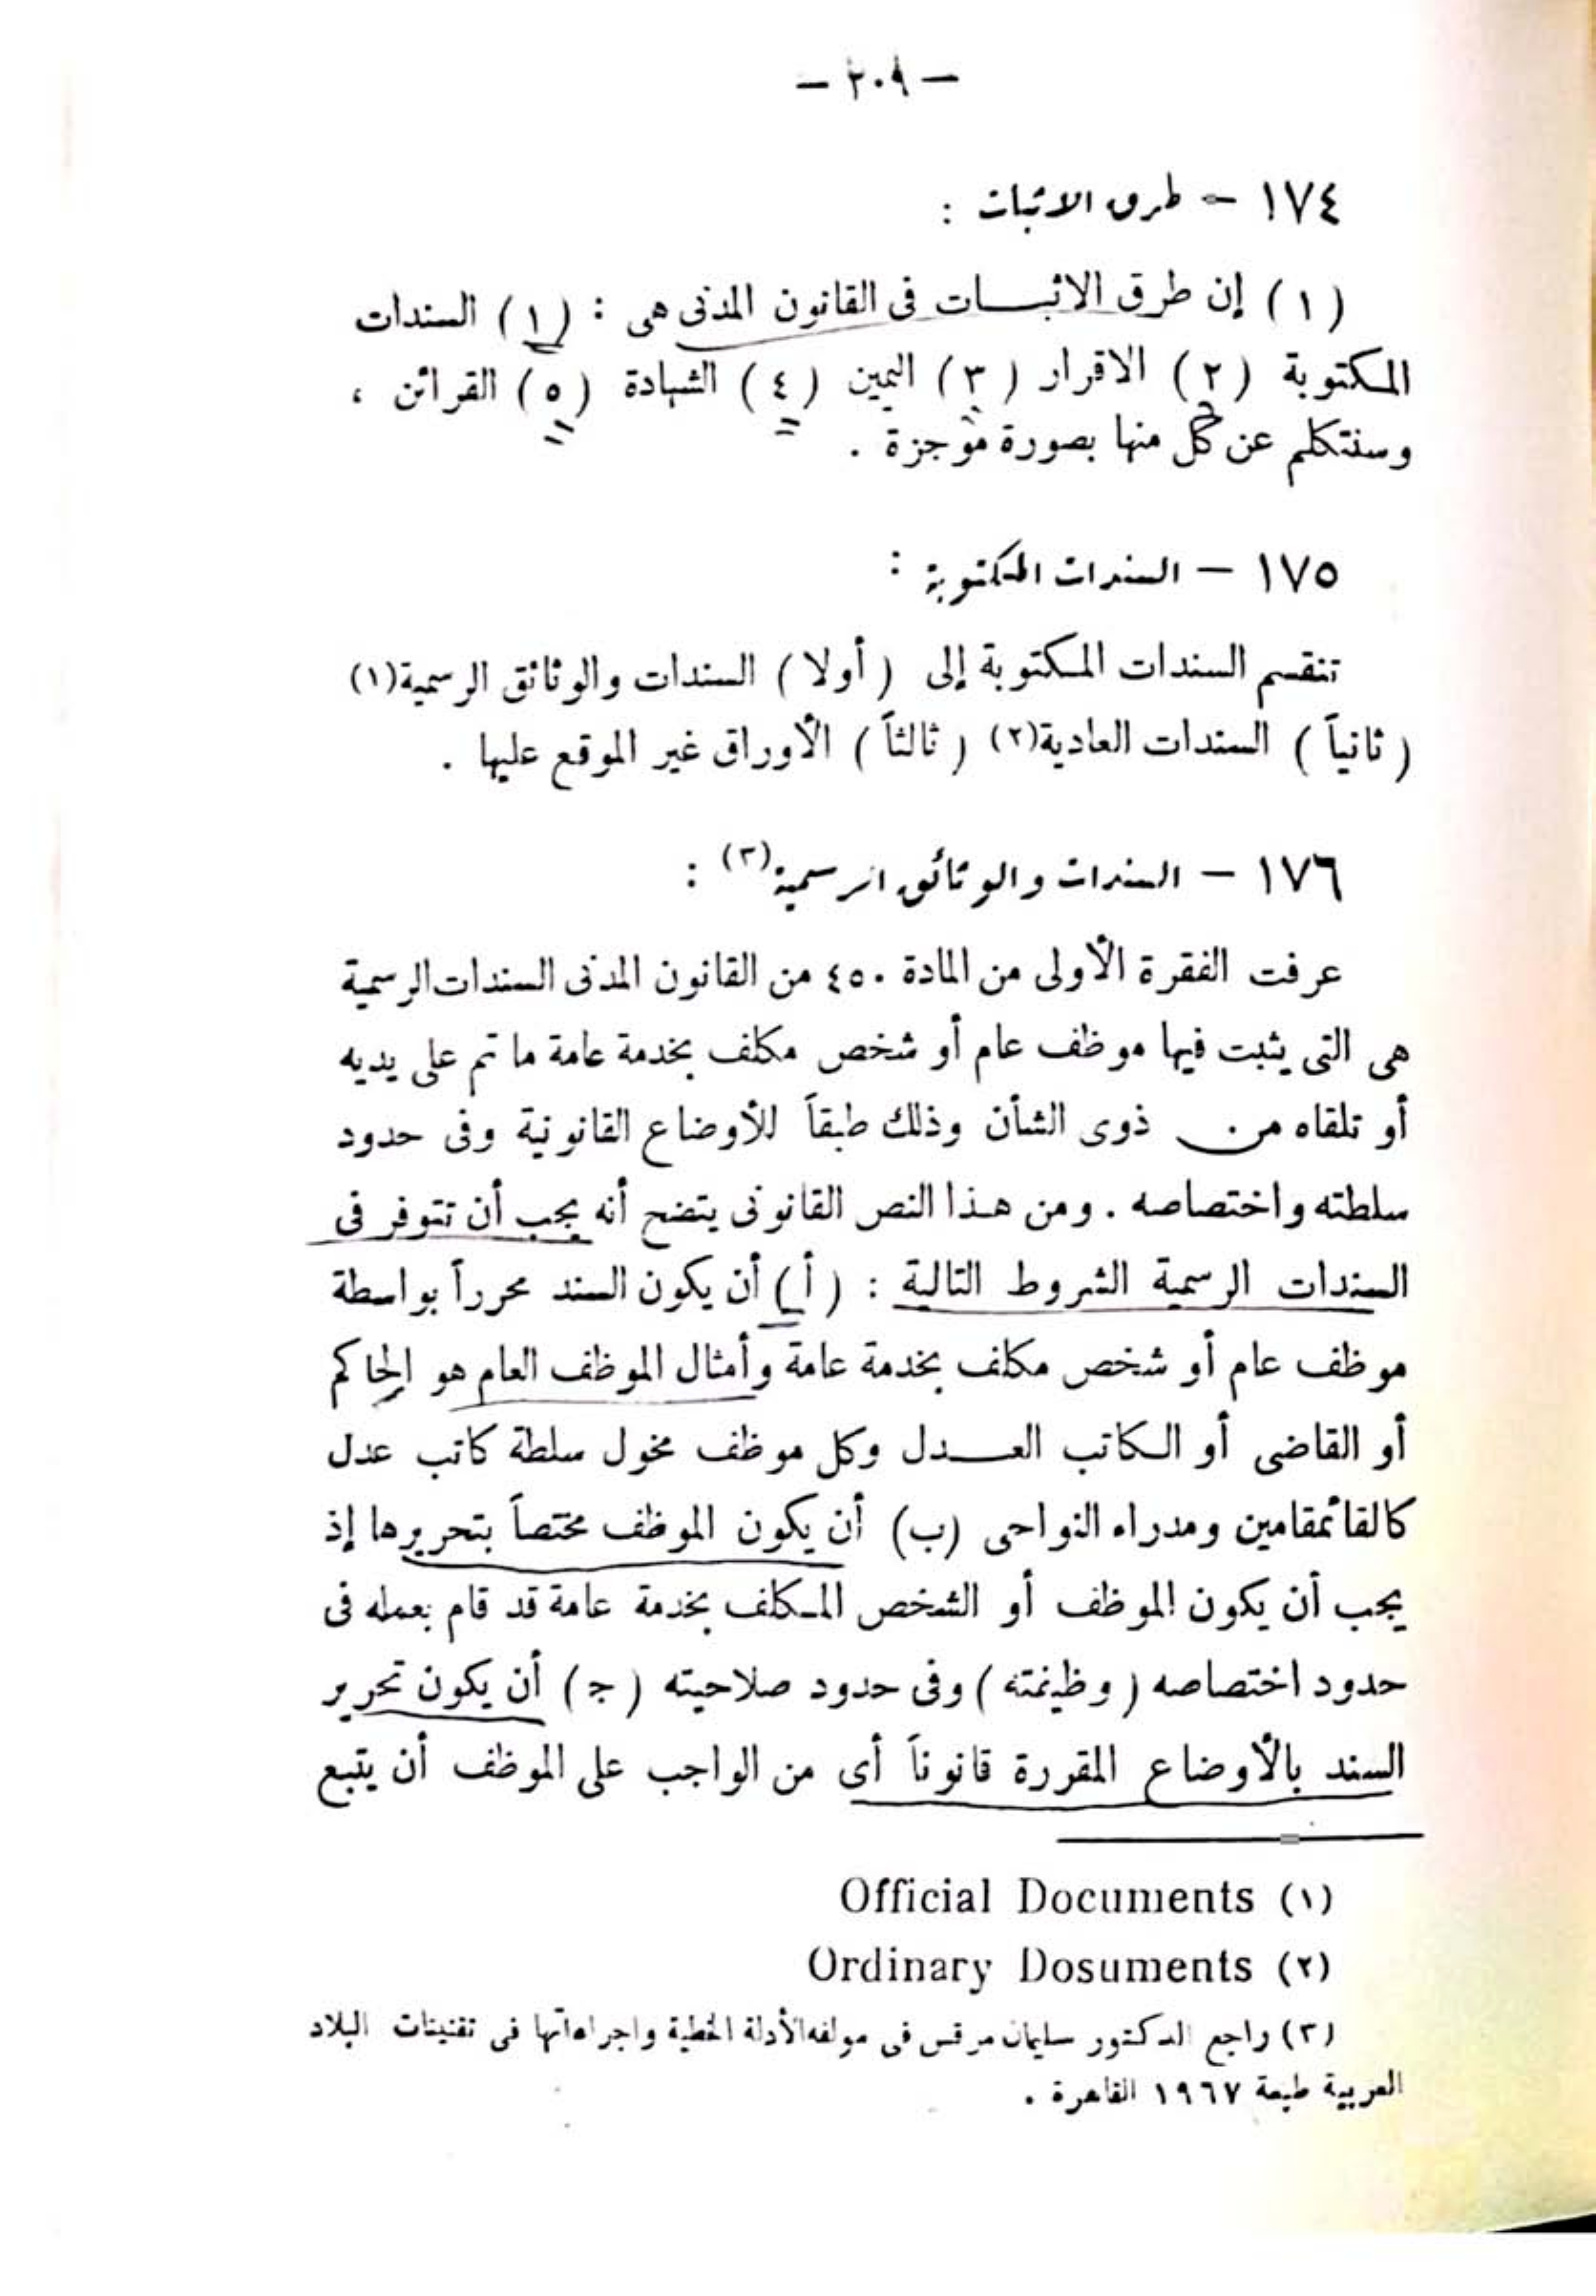 — ٢٠٩ —
١٧٤ — طرق الاثبات :
( ١ ) إن طرق الاثبـــات فى القانون المدنى هى : (١) السندات
المكتوبة (٢) الاقرار (٣) اليمين (٤) الشهادة (٥) القرائن ،
وسنتكلم عن كل منها بصورة موجزة .
١٧٥ — السندات المكتوبة :
تنقسم السندات المكتوبة إلى ( أولا ) السندات والوثائق الرسمية(١)
( ثانياً ) السندات العادية(٢) ( ثالثاً ) الأوراق غير الموقع عليها .
١٧٦ — السندات والوثائق الرسمية(٣) :
عرفت الفقرة الأولى من المادة ٤٥٠ من القانون المدنى السندات الرسمية
هى التى يثبت فيها موظف عام أو شخص مكلف بخدمة عامة ما تم على يديه
أو تلقاه من ذوى الشأن وذلك طبقاً للأوضاع القانونية وفى حدود
سلطته واختصاصه . ومن هـذا النص القانونى يتضح أنه يجب أن تتوفر فى
السندات الرسمية الشروط التالية : ( أ ) أن يكون السند محرراً بواسطة
موظف عام أو شخص مكلف بخدمة عامة وأمثال الموظف العام هو الحاكم
أو القاضى أو الكاتب العـــدل وكل موظف مخول سلطة كاتب عدل
كالقائمقامين ومدراء النواحى (ب) أن يكون الموظف مختصاً بتحريرها إذ
يجب أن يكون الموظف أو الشخص المكلف بخدمة عامة قد قام بعمله فى
حدود اختصاصه ( وظيفته ) وفى حدود صلاحيته ( ج ) أن يكون تحرير
السند بالأوضاع المقررة قانوناً أى من الواجب على الموظف أن يتبع
(١) Official Documents
(٢) Ordinary Dosuments
(٣) راجع الدكتور سليمان مرقس فى مولفه الأدلة الخطية واجراءاتها فى تقنينات البلاد
العربية طبعة ١٩٦٧ القاهرة .